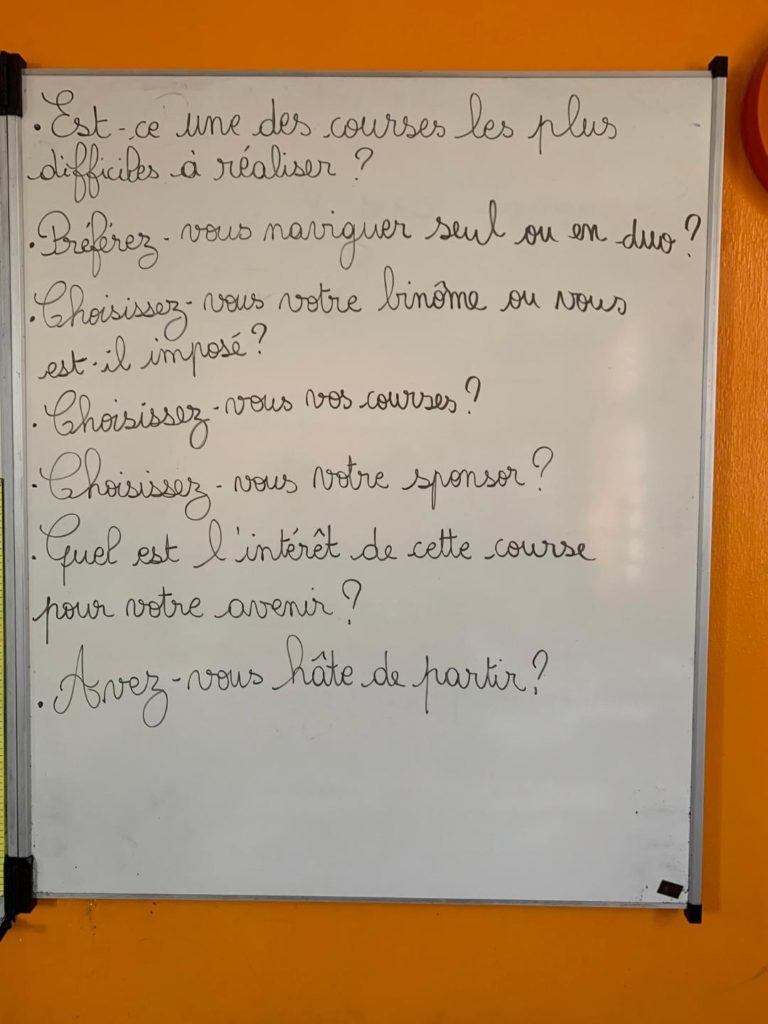 . Est-ce une des courses les plus
difficiles à réaliser ?
. Préférez-vous naviguer seul ou en duo ?
. Choisissez-vous votre binôme ou vous
est-il imposé ?
. Choisissez-vous vos courses ?
. Choisissez-vous votre sponsor ?
. Quel est l'intérêt de cette course
pour votre avenir ?
. Avez-vous hâte de partir ?